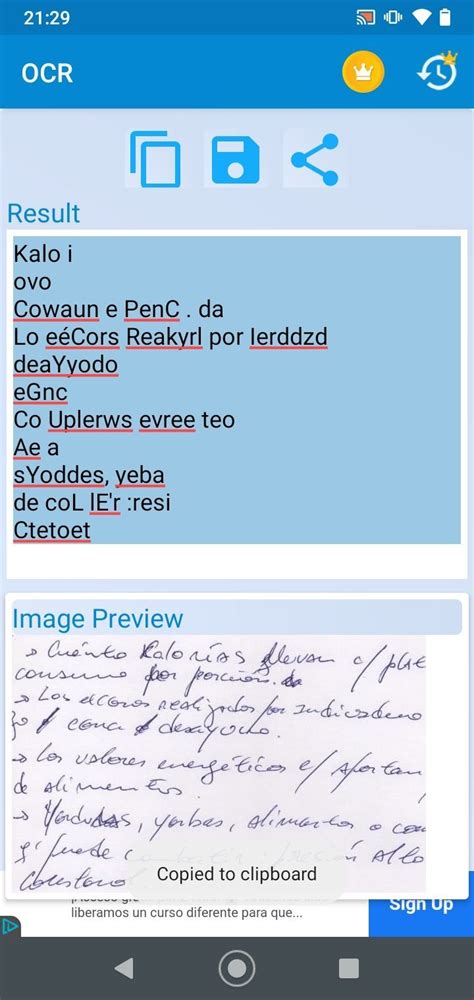 21:29
OCR
Result
Kalo i
ovo
Cowaun e PenC . da
Lo eéCors Reakyrl por Ierddzd
deaYyodo
eGnc
Co Uplerws evree teo
Ae a
sYoddes, yeba
de coL lE'r :resi
Ctetoet
Image Preview
→ Cuánto Kalorías llevan c/
consumo por porción.
→ Los
cena desayuno.
→ Los valores energéticos
de alimentos.
→ Verduras, yerbas, alimentos o
puede alto
Copied to clipboard
liberamos un curso diferente para que...
Sign Up